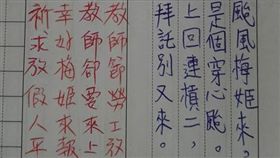 颱風梅姬來，
是個穿心颱。
上回連橫二，
拜託別又來。
教師節勞工放
教師卻愛來上
幸好梅姬來報
祈求放假人平